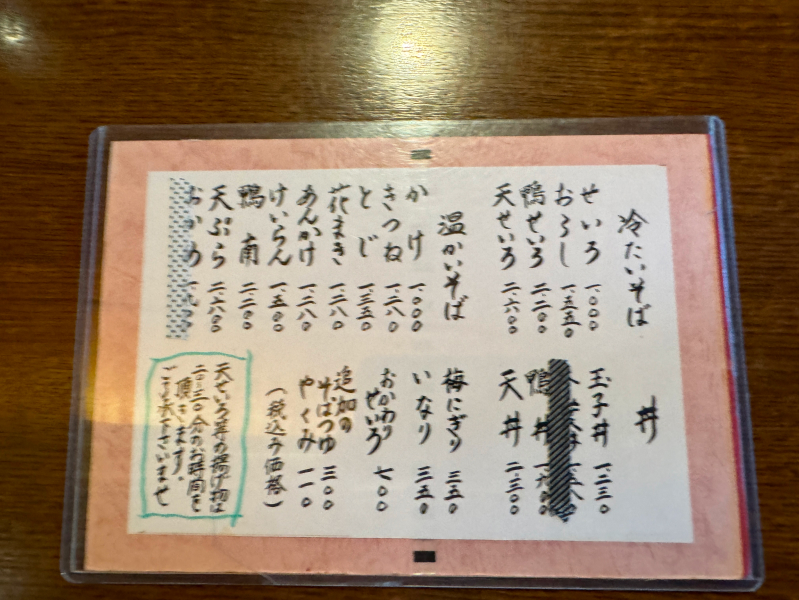 冷たいそば
せいろ 一、〇〇〇
おろし 一、五五〇
鴨せいろ 二、二〇〇
天せいろ 二、六〇〇
温かいそば
かけ 一、〇〇〇
きつね 一、二八〇
とじ 一、三五〇
花まき 一、二八〇
あんかけ 一、二八〇
けいらん 一、五〇〇
鴨南 二、二〇〇
天ぷら 二、六〇〇
おかめ
丼
玉子丼 一、二三〇
鴨丼 一、九〇〇
天丼 二、三〇〇
梅にぎり 三五〇
いなり 三五〇
おかわりせいろ 七〇〇
追加の
そばつゆ 三〇〇
やくみ 一一〇
(税込み価格)
天せいろ等の揚げ物は
二〇〜三〇分のお時間を
頂きます。
ご了承下さいませ